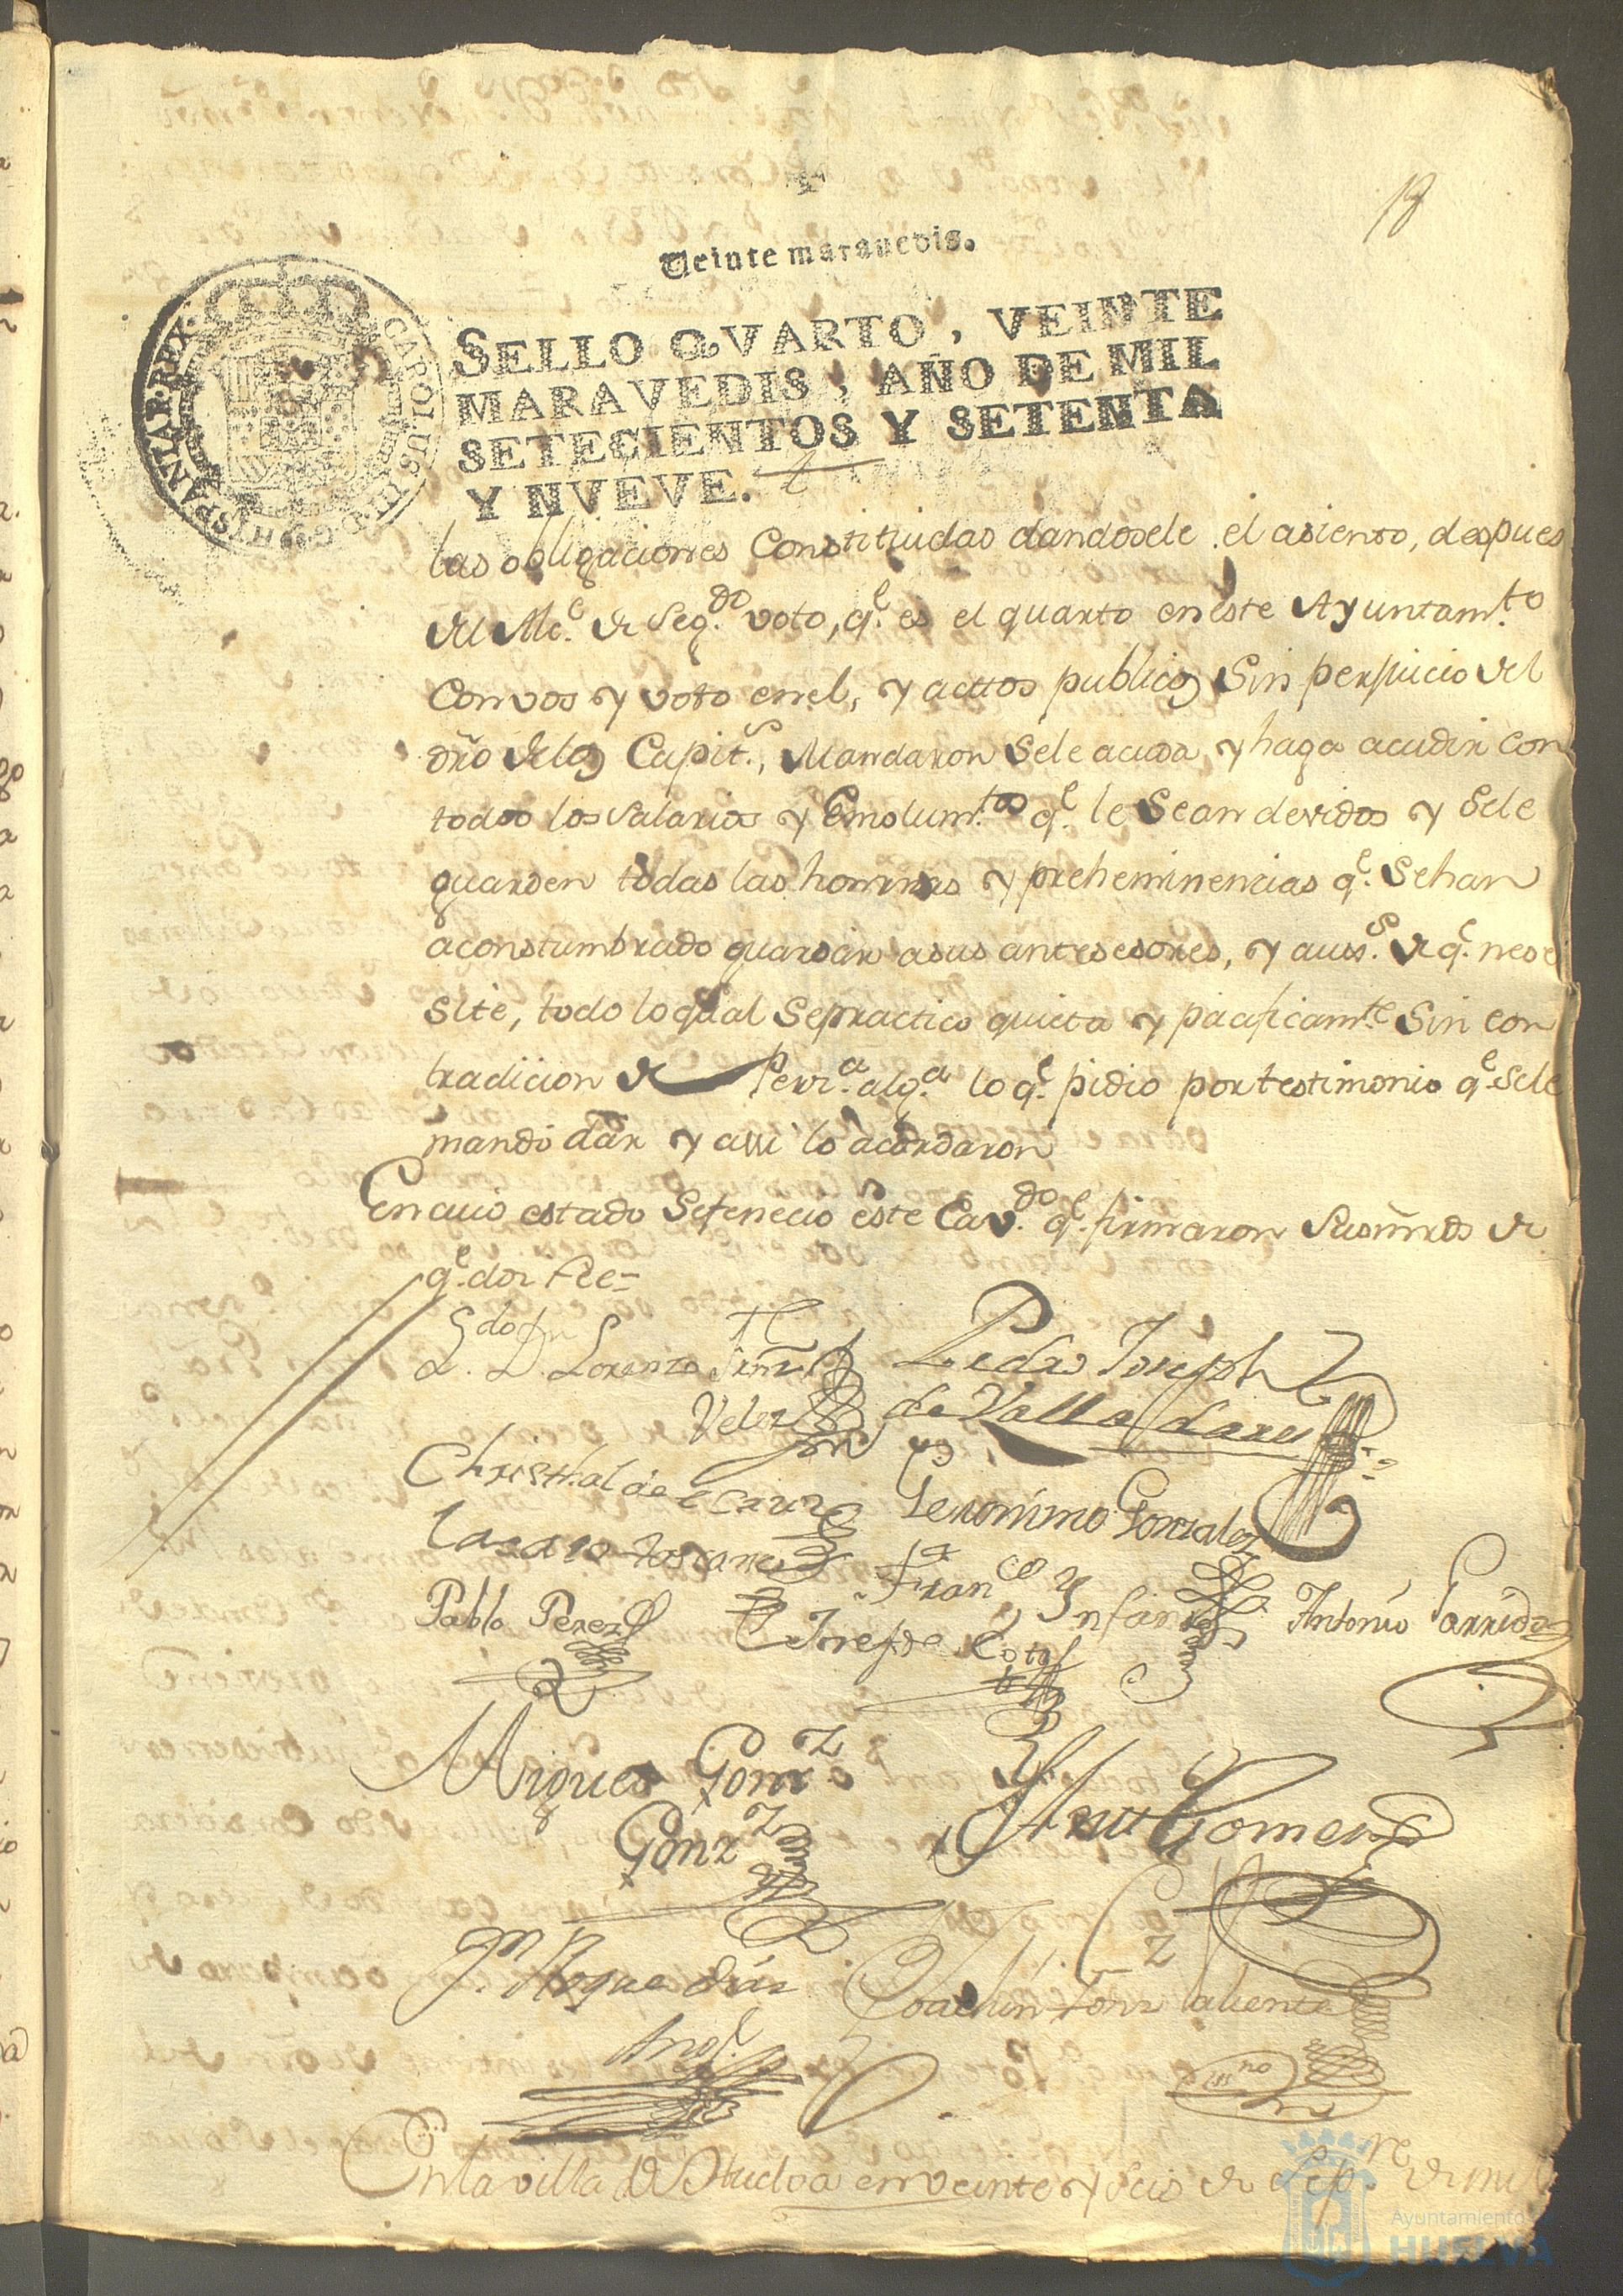 18
Veinte maravedis.
SELLO QVARTO, VEINTE
MARAVEDIS, AÑO DE MIL
SETECIENTOS Y SETENTA
Y NVEVE.
CAROLUS III D G HISPANIAR REX
las obligaciones Constituidas dandosele el asiento, despues
del Alc.e de Seg.do voto, q.e es el quarto en este Ayuntam.to
con vos y voto en el, y actos publicos Sin perjuicio del
dr̃o de los Capit.s, Mandaron Sele acuda y haga acudir con
todos los Salarios y Emolum.tos q.e le Sean devidos y Sele
guarden todas las honrras y preheminencias q.e Sehan
aconstumbrado guardar asus antesesores, y auss.s de q.e nese
site, todo loqual Sepractico quieta y pacificam.te Sin con
tradicion de Perz.a alg.a lo q.e pidio por testimonio q.e Sele
mandó dar y assi lo acordaron
En cuio estado Sefenecio este Cav.do q.e firmaron Susm̃rds de
q.e doi fee=
L.do D.n Lorenzo Ximz
Velez
Pedro Joseph
de Valladares
Christhal de
Geronimo Gonzalez
Lazaro toscano
Fran.co Infante
Antonio Garrido
Pablo Perez
Josefde Cota
Miguel Gonz.z
Gonz.z
Gomez
J.n Roque Diaz
Joachin Gonz Valiente
ess.no
En la villa de Huelva en veinte y seis de Sep.re de mil
Ayuntamiento
HUELVA